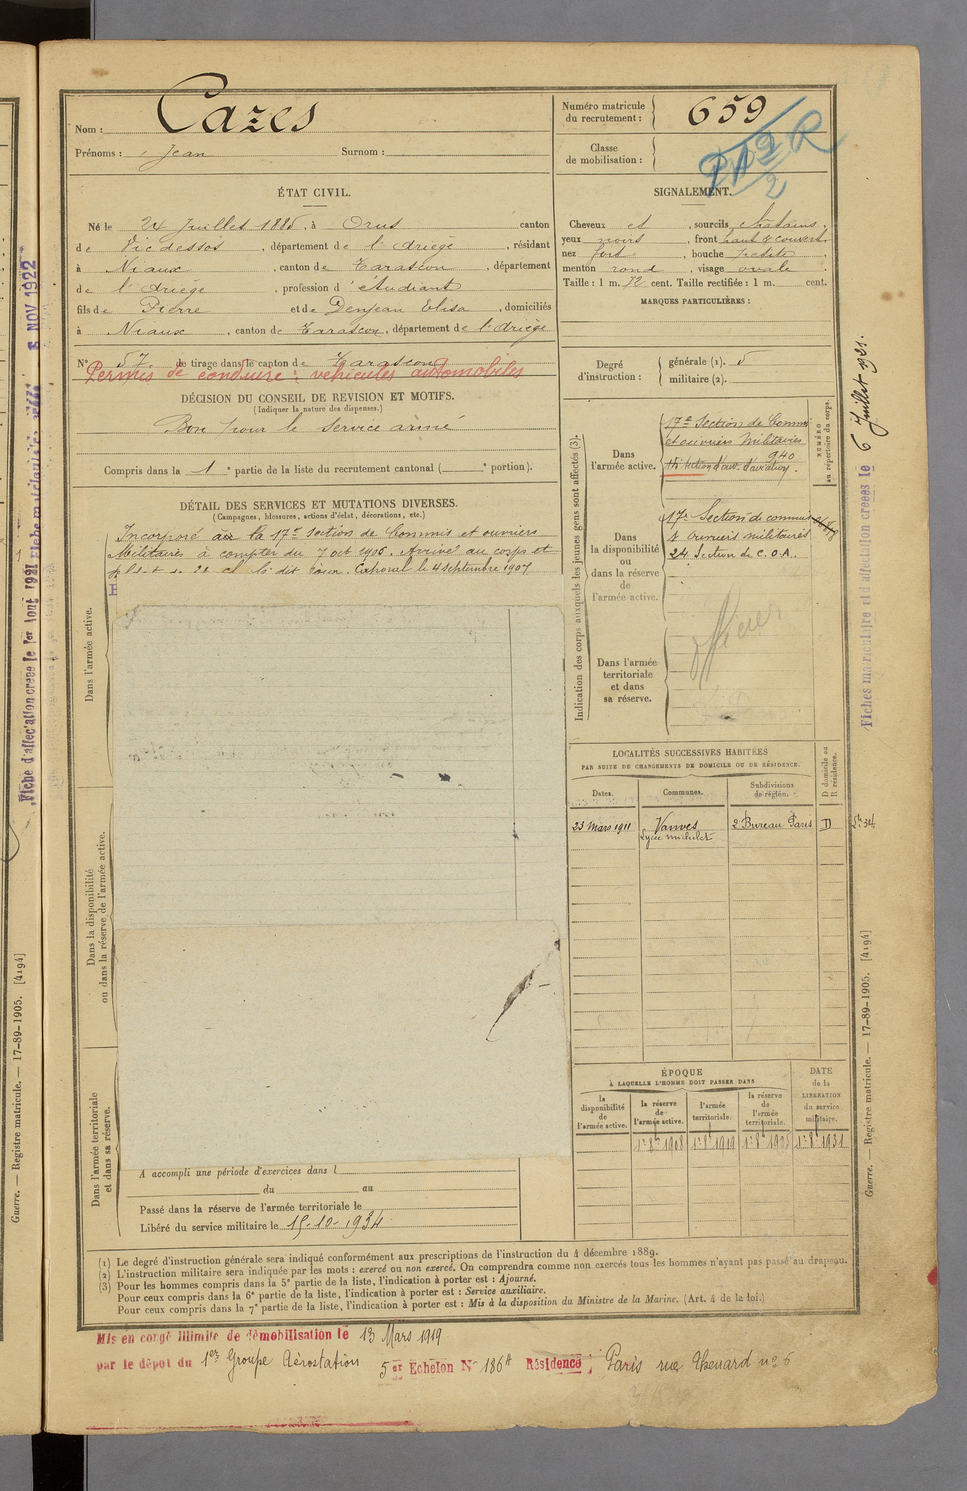 Nom : Cazes
Prénoms : Jean Surnom :
Numéro matricule du recrutement : 659
Classe de mobilisation :
ÉTAT CIVIL.
Né le 24 Juillet 1885, à Orus canton
de Vicdessos, département de l'Ariège, résidant
à Niaux, canton de Tarascon, département
de l'Ariège, profession d'étudiant
fils de Pierre et de Denjean Elisa, domiciliés
à Niaux, canton de Tarascon, département de l'Ariège
N° 57 de tirage dans le canton de Tarascon
Permis de conduire : véhicules automobiles
DÉCISION DU CONSEIL DE REVISION ET MOTIFS.
(Indiquer la nature des dispenses.)
Bon pour le service armé
Compris dans la 1e partie de la liste du recrutement cantonal ( e portion).
SIGNALEMENT.
Cheveux et, sourcils châtains,
yeux noirs, front haut & couvert
nez fort, bouche petite,
menton rond, visage ovale
Taille : 1 m. 72 cent. Taille rectifiée : 1 m. cent.
MARQUES PARTICULIÈRES :
Degré d'instruction : générale (1). 5
militaire (2).
DÉTAIL DES SERVICES ET MUTATIONS DIVERSES.
(Campagnes, blessures, actions d'éclat, décorations, etc.)
Incorporé à la 17e section de Commis et ouvriers
Militaires à compter du 7 oct 1906. Arrivé au corps et
le dit jour. Caporal le 4 septembre 1907
Dans l'armée active.
Dans la disponibilité
ou dans la réserve de l'armée active.
Dans l'armée territoriale
et dans sa réserve.
A accompli une période d'exercices dans l
du au
Passé dans la réserve de l'armée territoriale le
Libéré du service militaire le 15-10-1934
Indication des corps auxquels les jeunes gens sont affectés (3).
NUMÉRO
au répertoire du corps.
Dans l'armée active.
17e Section de Commis
et ouvriers Militaires
940
d'aviation.
Dans la disponibilité
ou
dans la réserve
de
l'armée active.
17e Section de commis
& ouvriers militaires
24 Section de C.O.A.
Dans l'armée
territoriale
et dans
sa réserve.
officier
LOCALITÉS SUCCESSIVES HABITÉES
PAR SUITE DE CHANGEMENTS DE DOMICILE OU DE RÉSIDENCE.
Dates. Communes. Subdivisions de région. D domicile ou R résidence.
23 Mars 1911 Vanves 2 Bureau Paris D
Lycée Michelet
ÉPOQUE
À LAQUELLE L'HOMME DOIT PASSER DANS
DATE de la LIBÉRATION du service militaire.
la disponibilité de l'armée active.
la réserve de l'armée active.
l'armée territoriale.
la réserve de l'armée territoriale.
1er 8bre 1908 1er 8bre 1919 1er 8bre 1925 1er 8bre 1931
(1) Le degré d'instruction générale sera indiqué conformément aux prescriptions de l'instruction du 4 décembre 1889.
(2) L'instruction militaire sera indiquée par les mots : exercé ou non exercé. On comprendra comme non exercés tous les hommes n'ayant pas passé au drapeau.
(3) Pour les hommes compris dans la 5e partie de la liste, l'indication à porter est : Ajourné.
Pour ceux compris dans la 6e partie de la liste, l'indication à porter est : Service auxiliaire.
Pour ceux compris dans la 7e partie de la liste, l'indication à porter est : Mis à la disposition du Ministre de la Marine. (Art. 4 de la loi.)
Mis en congé illimité de démobilisation le 13 Mars 1919
par le dépôt du 1er Groupe Aérostation 5e Echelon N° 186A Résidence : Paris rue Thenard n° 6
Fiches matricule et d'affectation créées le 6 Juillet 1921.
Guerre. — Registre matricule. — 17-89-1905. [4194]
Fiche d'affectation créée le 1er Août 1921
Guerre. — Registre matricule. — 17-89-1905. [4194]